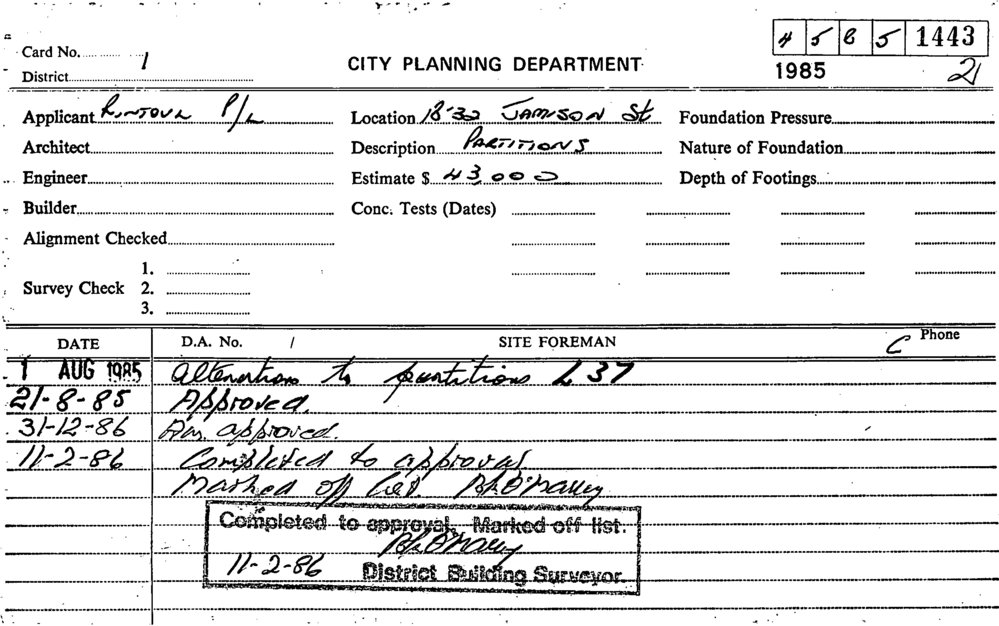 4 5 8 5 1443
Card No. 1
CITY PLANNING DEPARTMENT
1985
21
District
Applicant Rintoul P/L Location 18-32 JAMISON St Foundation Pressure
Architect Description PARTITIONS Nature of Foundation
Engineer Estimate $ 43,000 Depth of Footings
Builder Conc. Tests (Dates)
Alignment Checked
1.
Survey Check 2.
3.
DATE D.A. No. / SITE FOREMAN C Phone
1 AUG 1985 alterations to partitions L37
21-8-85 Approved.
31-12-86 approved.
11-2-86 Completed to approval
Marked off list. O'Malley
Completed to approval. Marked off list.
O'Malley
11-2-86 District Building Surveyor.